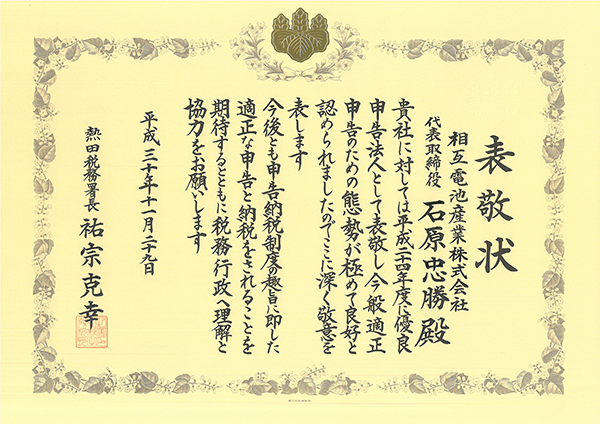 表敬状
相互電池産業株式会社
代表取締役 石原忠勝殿
貴社に対しては平成二十四年度に優良
申告法人として表敬し今般適正
申告のための態勢が極めて良好と
認められましたのでここに深く敬意を
表します
今後とも申告納税制度の趣旨に即した
適正な申告と納税をされることを
期待するとともに税務行政へ理解と
協力をお願いします
平成三十年十一月二十九日
熱田税務署長 祐宗克幸